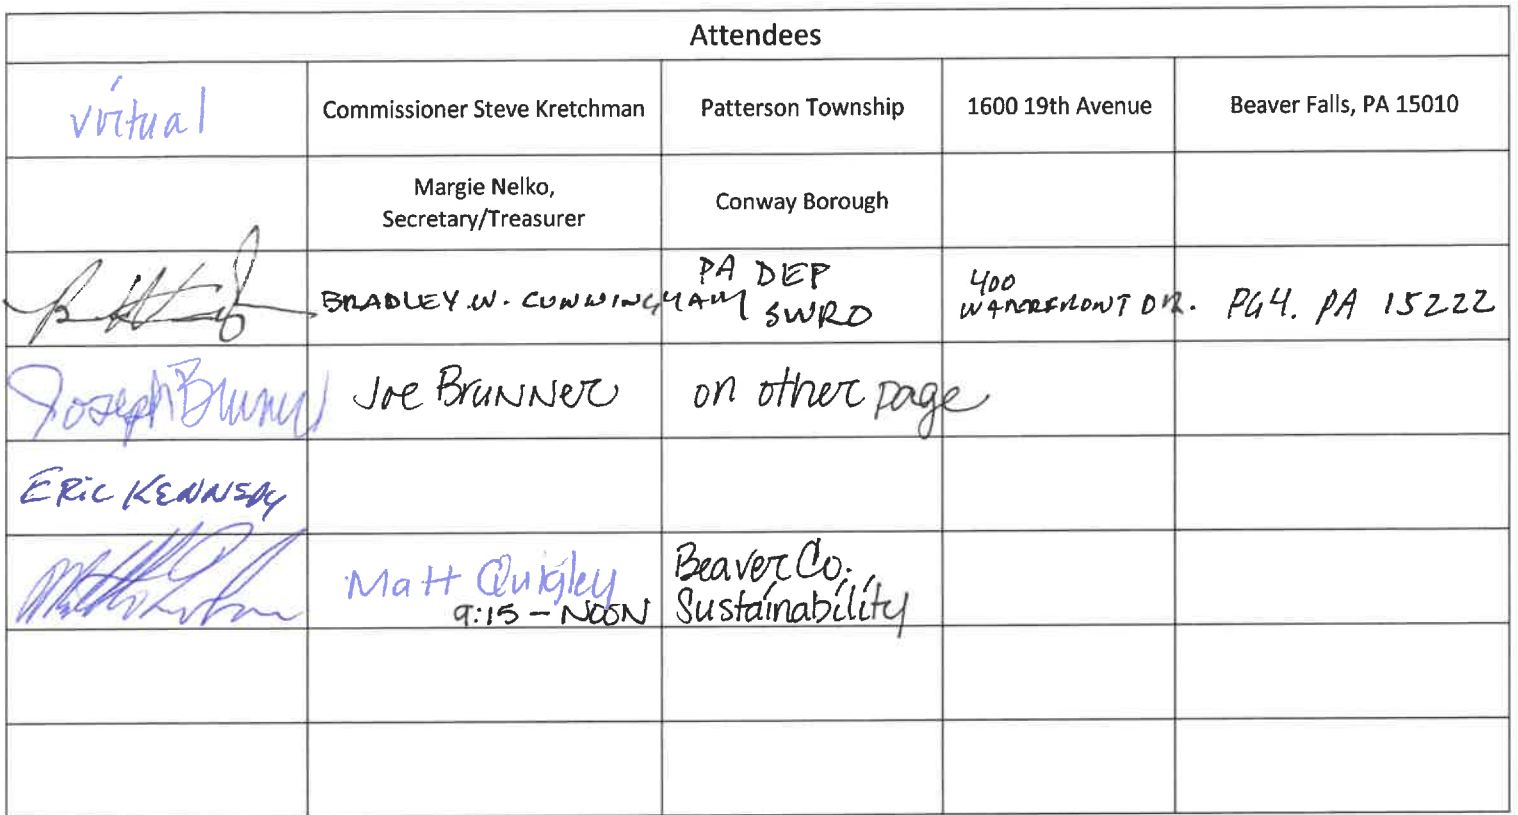 Attendees
virtual Commissioner Steve Kretchman Patterson Township 1600 19th Avenue Beaver Falls, PA 15010
Margie Nelko,
Secretary/Treasurer Conway Borough
PA DEP 400
BRADLEY W. CUNNINGHAM SWRO WATERFRONT DR. PGH. PA 15222
Joseph Brunner Joe Brunner on other page
ERIC KENNEDY
Matt Quigley Beaver Co.
9:15 - NOON Sustainability